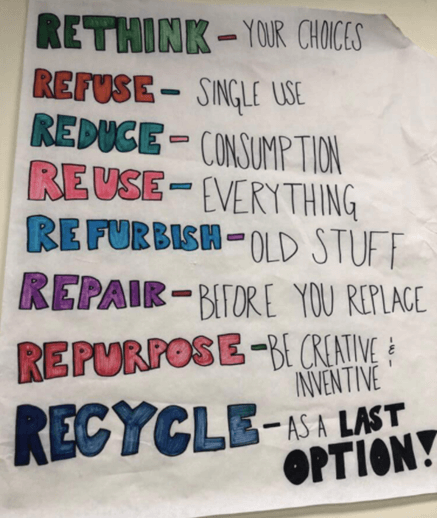 RETHINK - YOUR CHOICES
REFUSE - SINGLE USE
REDUCE - CONSUMPTION
REUSE - EVERYTHING
REFURBISH - OLD STUFF
REPAIR - BEFORE YOU REPLACE
REPURPOSE - BE CREATIVE &
INVENTIVE
RECYCLE - AS A LAST
OPTION!